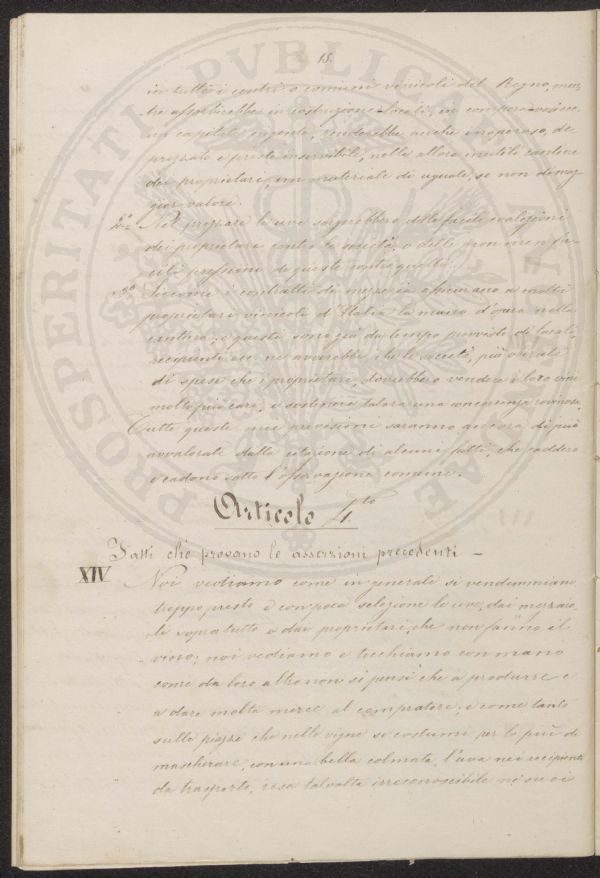 18.
in tutti i centri o comuni vinicoli del Regno, men,
tre assorbirebbe in costruzione locali, in
un capitale ingente, renderebbe anche inoperoso, de,
prezzato e presto inservibile, nelle allora inutili cantine
dei proprietari, un materiale di uguale, se non di mag,
gior valore.
2.º Nel prezzare le uve sorgerebbero delle facili coalizioni
dei proprietari contro la società, o delle non meno fa,
cili pressioni di questa contro quelli.
3.º Siccome i contratti di mezzeria assicurano a molti
proprietari vinicoli d'Italia la mano d'opera nella
cantina, e questi sono già da tempo provvisti di locali,
recipienti ecc. ne avverrebbe che le società, più oberate
di spese che i proprietari, dovrebbero vendere i loro vini
molto più cari, e sostenere talora una concorrenza rovinosa.
Tutte queste mie previsioni saranno ancora di più
avvalorate dalla citazione di alcuni fatti, che caddero
e cadono sotto l'osservazione comune.
Articolo 4.to
Fatti che provano le asserzioni precedenti –
XIV Noi vediamo come in generale si vendemmiano
troppo presto e con poca selezione le uve, dai mezzaio,
li sopratutto e dai proprietari, che non fanno il
vino; noi vediamo e tocchiamo con mano
come da loro altro non si pensi che a produrre e
a dare molta merce al compratore; e come tanto
sulle piazze che nelle vigne si costumi per lo più di
mascherare, con una bella colmata, l'uva nei recipienti
da trasporto, resa talvolta irreconoscibile nei suoi
PROSPERITATI PVBLICAE